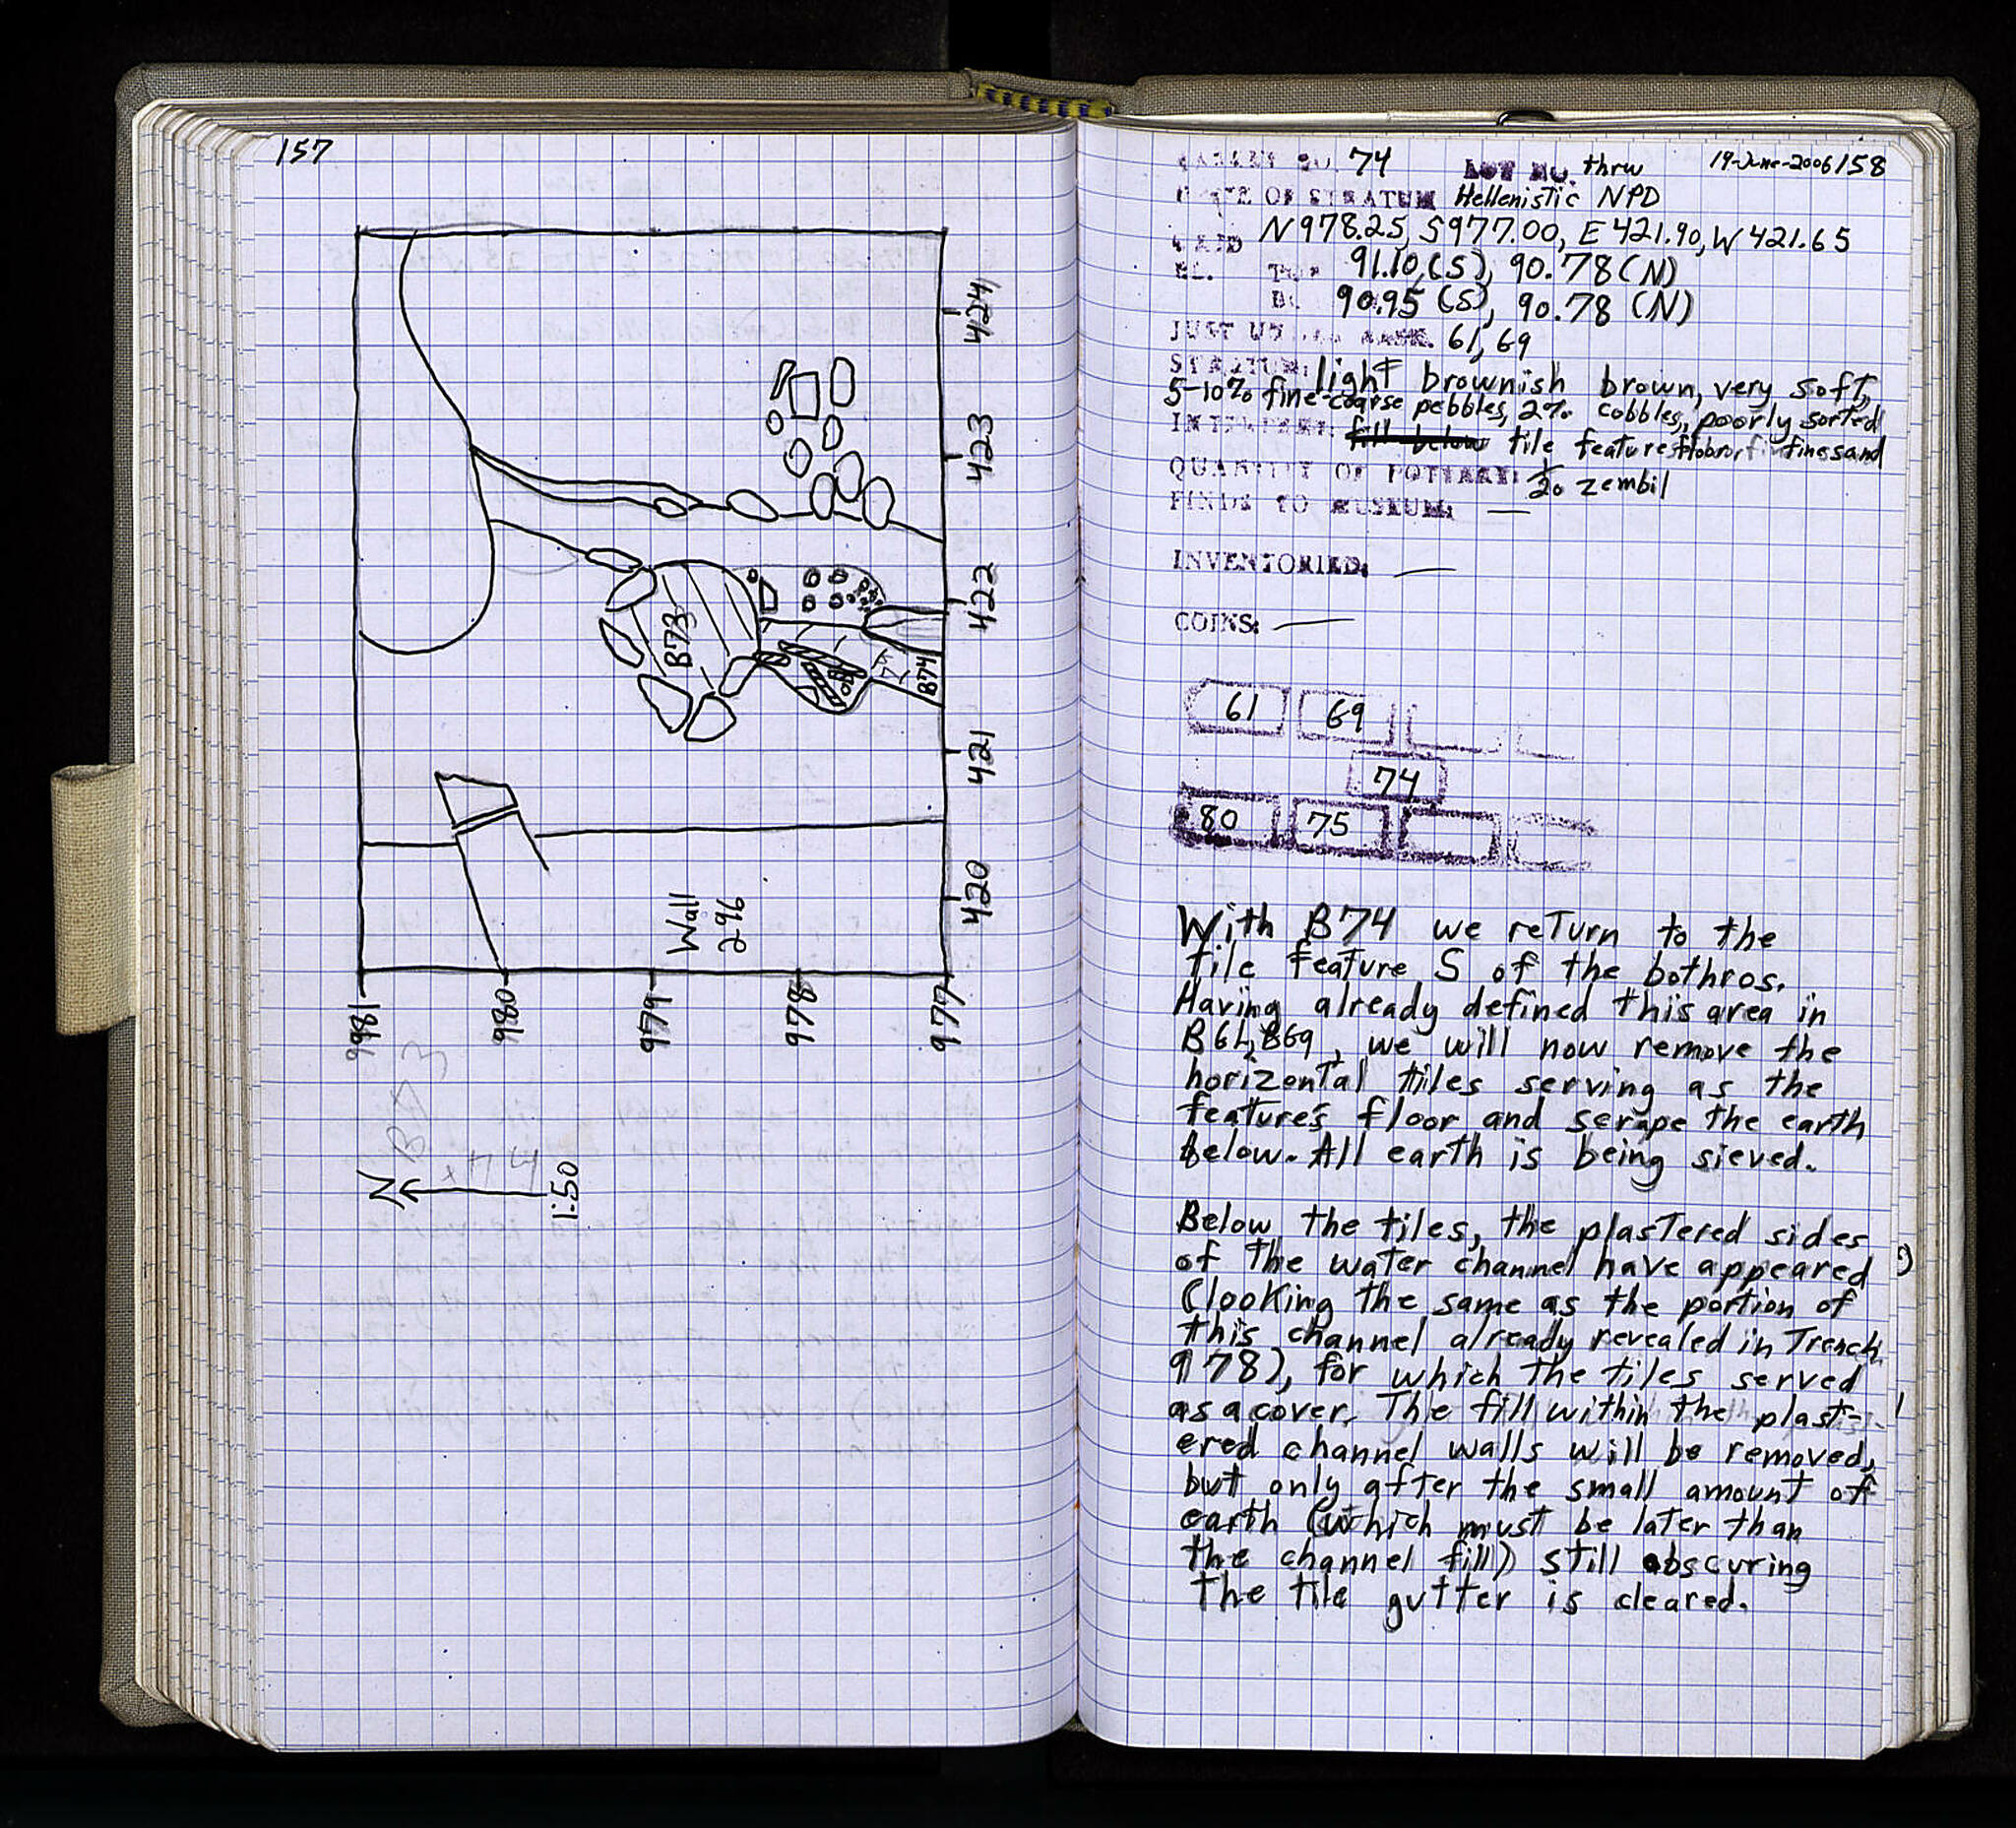 157
424
423
422
421
420
B73
B74
Wall
296
981
980
979
978
977
B73
x 74
N
1:50
BASKET NO. 74 LOT NO. thrw 19-June-2006 158
DATE OF STRATUM Hellenistic NPD
GRID N978.25, S977.00, E421.90, W421.65
EL. TOP 91.10 (S), 90.78 (N)
90.95 (S), 90.78 (N)
JUST UNDER BASK. 61, 69
STRATUM: light brownish brown, very soft,
5-10% fine-coarse pebbles, 2% cobbles, poorly sorted
fill below tile feature floor fine sand
QUANTITY OF POTTERY: 1/20 zembil
FINDS TO MUSEUM: —
INVENTORIED: —
COINS: —
61 69
74
80 75
With B74 we return to the
tile feature S of the bothros.
Having already defined this area in
B61, B69, we will now remove the
horizental tiles serving as the
feature's floor and scrape the earth
below. All earth is being sieved.
Below the tiles, the plastered sides
of the water channel have appeared
(looking the same as the portion of
this channel already revealed in Trench
978), for which the tiles served
as a cover. The fill within the plast-
ered channel walls will be removed,
but only after the small amount of
earth (which must be later than
the channel fill) still obscuring
the tile gutter is cleared.